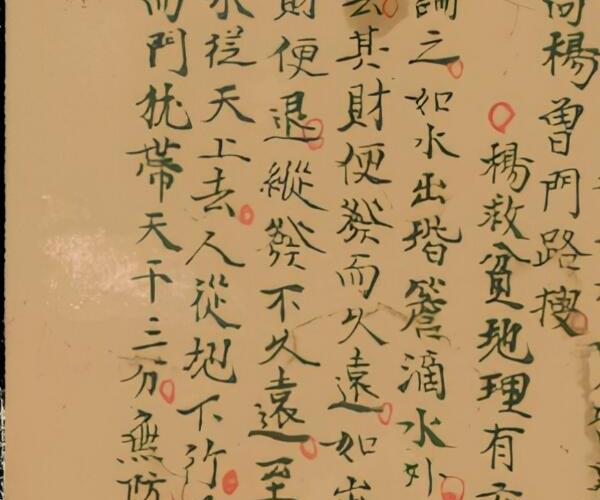 楊曽門路搜
楊救貧地理有
論之如水出堦簷滴水外
去其財便發而久遠如出
財便退縱發不久遠至
水從天上去人從地下行
而門犹帶天干三分無防